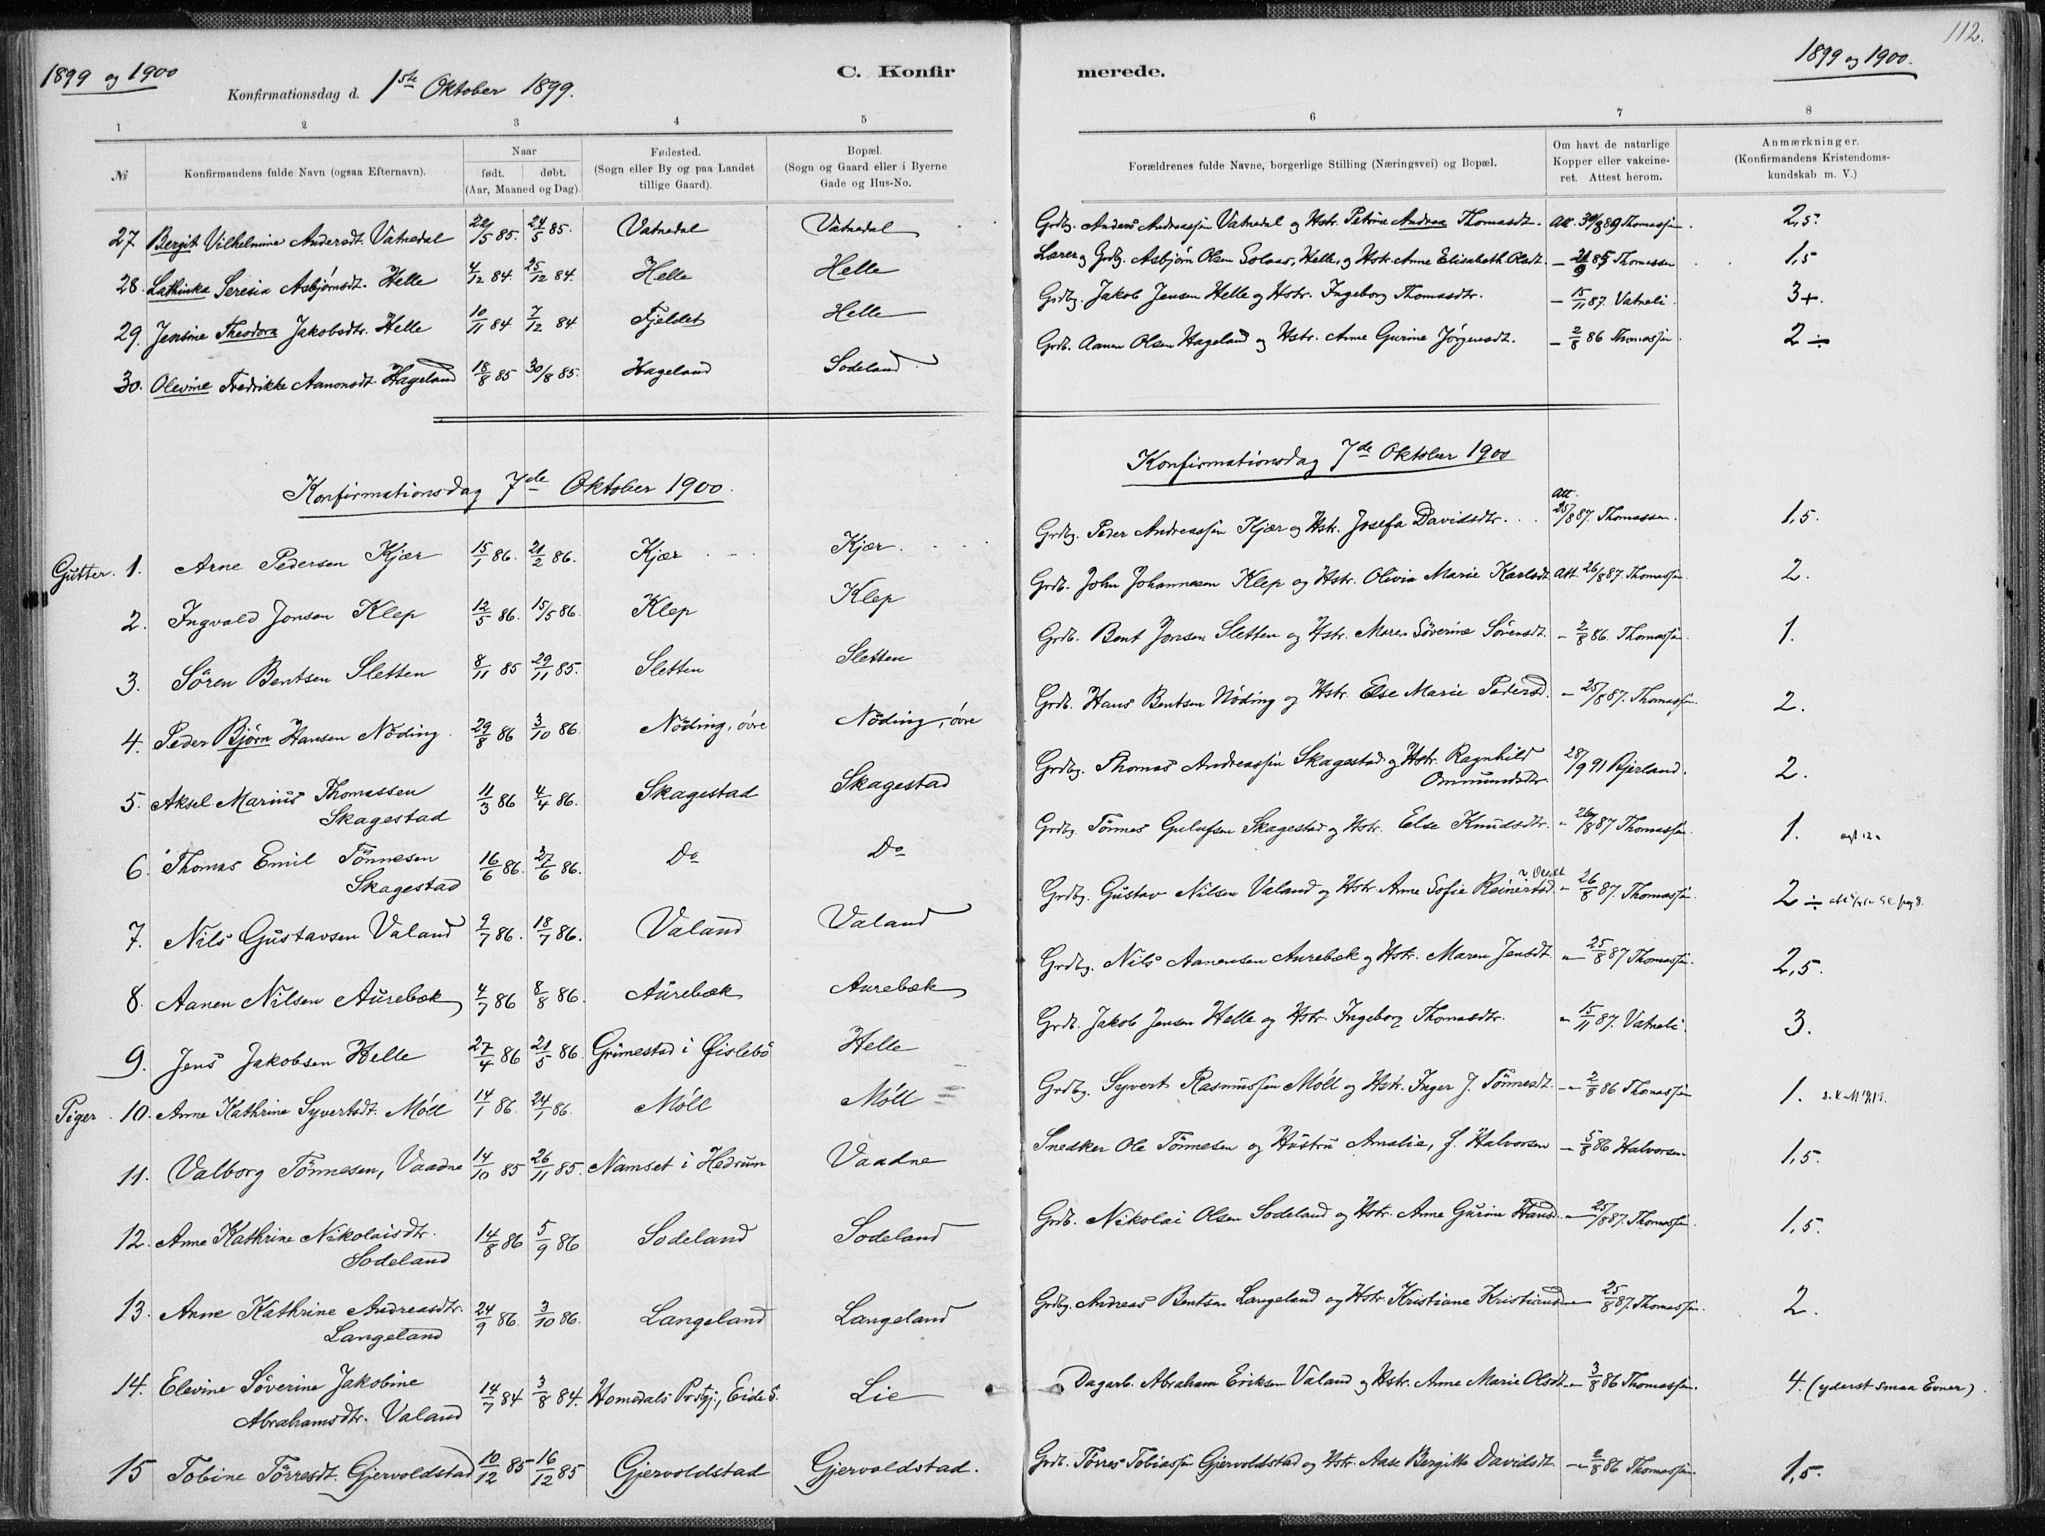 112.
1899 og 1900
1899 og 1900.
C. Konfir
merede.
Konfirmationsdag d. 1ste Oktober 1899.
1 2 3 4 5
6 7 8
№ Konfirmandens fulde Navn (ogsaa Efternavn). Naar født. døbt. (Aar, Maaned og Dag). Fødested. (Sogn eller By og paa Landet tillige Gaard). Bopæl. (Sogn og Gaard eller i Byerne Gade og Hus-No.
Forældrenes fulde Navne, borgerlige Stilling (Næringsvei) og Bopæl. Om havt de naturlige Kopper eller vakcineret. Attest herom. Anmærkninger. (Konfirmandens Kristendomskundskab m. V.)
27 Bergit Vilhelmine Andersdt. Vatnedal 22/5 85. 24/5 85. Vatnedal Vatnedal
Grdbg. Anders Andreassen Vatnedal og Hstr. Petrine Andrea Thomasdt. Att. 30/8 89 Thomassen. 2,5.
28. Lathinka Seresia Asbjørnsdt. Helle 4/12 84. 25/12 84. Helle Helle
Lærer og Grdbg. Asbjørn Olsen Solaas, Helle, og Hstr. Anne Elisabeth Olsdt. – 21/9 85 Thomassen 1,5
29. Jensine Theodora Jakobsdtr. Helle 10/11 84 7/12 84 Fjeldet Helle
Grdbg. Jakob Jensen Helle og Hstr. Ingeborg Thomasdtr. – 15/11 87. Vatneli. 3+.
30. Olevine Fredrikke Aanonsdt. Hageland 18/8 85 30/8 85. Hageland Sodeland
Grdb. Aanen Olsen Hageland og Hstr. Anne Gurine Jørgensdt. – 2/8 86 Thomassen. 2 ÷
Konfirmationsdag 7de Oktober 1900.
Konfirmationsdag 7de Oktober 1900
Gutter. 1. Arne Pedersen Kjær 15/1 86. 21/2 86. Kjær Kjær.
Grdbg. Peder Andreassen Kjær og Hstr. Josefa Davidsdtr. Att. 25/8 87. Thomassen. 1,5.
2. Ingvald Jonsen Klep 12/5 86. 15/5 86. Klep Klep
Grdb. John Johannesen Klep og Hstr. Olivia Marie Karlsdt. Att 26/8 87. Thomassen. 2.
3. Sören Bentsen Sletten 8/11 85 29/11 85. Sletten Sletten
Grdb. Bent Jonsen Sletten og Hstr. Maren Söverine Sörensdt. – 2/8 86. Thomassen. 1.
4. Peder Bjørn Hansen Nöding. 29/8 86 3/10 86. Nöding, övre Nöding, övre
Grdb. Hans Bentsen Nöding og Hstr. Else Marie Pedersd. – 25/8 87. Thomassen. 2.
5. Aksel Marius Thomassen Skagestad 11/3 86 4/4 86. Skagestad Skagestad
Grdbg. Thomas Andreassen Skagestad og Hstr. Ragnhild Ommundsdtr. 28/9 91 Bjerland. 2.
6. Thomas Emil Tönnesen Skagestad 16/6 86. 27/6 86. Do Do
Grdbg. Tönnes Gulufsen Skagestad og Hstr. Else Knudsdtr. – 26/8 87 Thomassen. 1.
7. Nils Gustavsen Valand 9/7 86. 18/7 86. Valand Valand
Grdbg. Gustav Nilsen Valand og Hstr. Anne Sofie Reinertsd. – 26/8 87. Thomassen. 2 ÷
8. Aanen Nilsen Aurebæk 4/7 86 8/8 86. Aurebæk Aurebæk
Grdbg. Nils Aanensen Aurebæk og Hstr. Maren Jensdt. – 25/8 87 Thomassen. 2,5.
9. Jens Jakobsen Helle 27/4 86 21/5 86. Grimestad i Øislebö Helle
Grdb. Jakob Jensen Helle og Hstr. Ingeborg Thomasdtr. – 15/11 87. Vatneli. 3.
Piger. 10. Anne Kathrine Syvertsdt. Möll 14/1 86. 24/1 86. Möll Möll
Grdbg. Syvert Rasmussen Möll og Hstr. Inger J. Tönnesdt. – 2/8 86 Thomassen 1.
11. Valborg Tönnesen, Vaadne 14/10 85 26/11 85. Namset i Hedrum Vaadne
Snedker Ole Tönnesen og Hustru Amalie, f. Halvorsen – 5/8 86 Halvorsen. 1,5.
12. Anne Kathrine Nikolaisdtr. Sodeland 14/8 86 5/9 86 Sodeland Sodeland
Grdb. Nikolai Olsen Sodeland og Hstr. Anne Gurine Hansd. – 25/8 87. Thomassen. 1,5.
13. Anne Kathrine Andreasdtr. Langeland 24/9 86. 3/10 86. Langeland Langeland
Grdbg. Andreas Bentsen Langeland og Hstr. Kristiane Kristiansd. – 25/8 87. Thomassen. 2.
14. Elevine Söverine Jakobine Abrahamsdtr. Valand 14/7 84 3/8 84. Homedals Prstgj., Eide S. Lie
Dagarb. Abraham Eriksen Valand og Hstr. Anne Marie Olsdt. – 3/8 86 Thomassen. 4. (yderst smaa Evner).
15 Tobine Törresdt. Gjervoldstad 10/12 85 16/12 85 Gjervoldstad Gjervoldstad.
Grdb. Törres Tobiassen Gjervoldstad og Hstr. Aase Bergitte Davidsdt. – 2/8 86 Thomassen. 1,5.